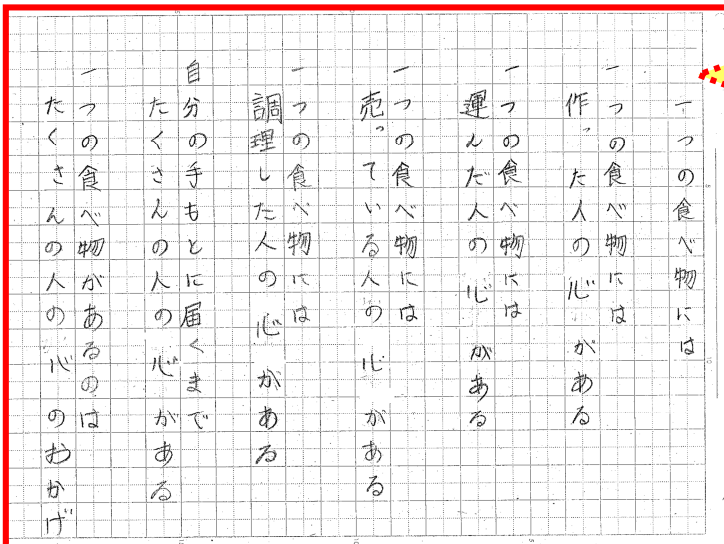 一つの食べ物には
一つの食べ物には
作った人の心がある
一つの食べ物には
運んだ人の心がある
一つの食べ物には
売っている人の心がある
一つの食べ物には
調理した人の心がある
自分の手もとに届くまで
たくさんの人の心がある
一つの食べ物があるのは
たくさんの人の心のおかげ